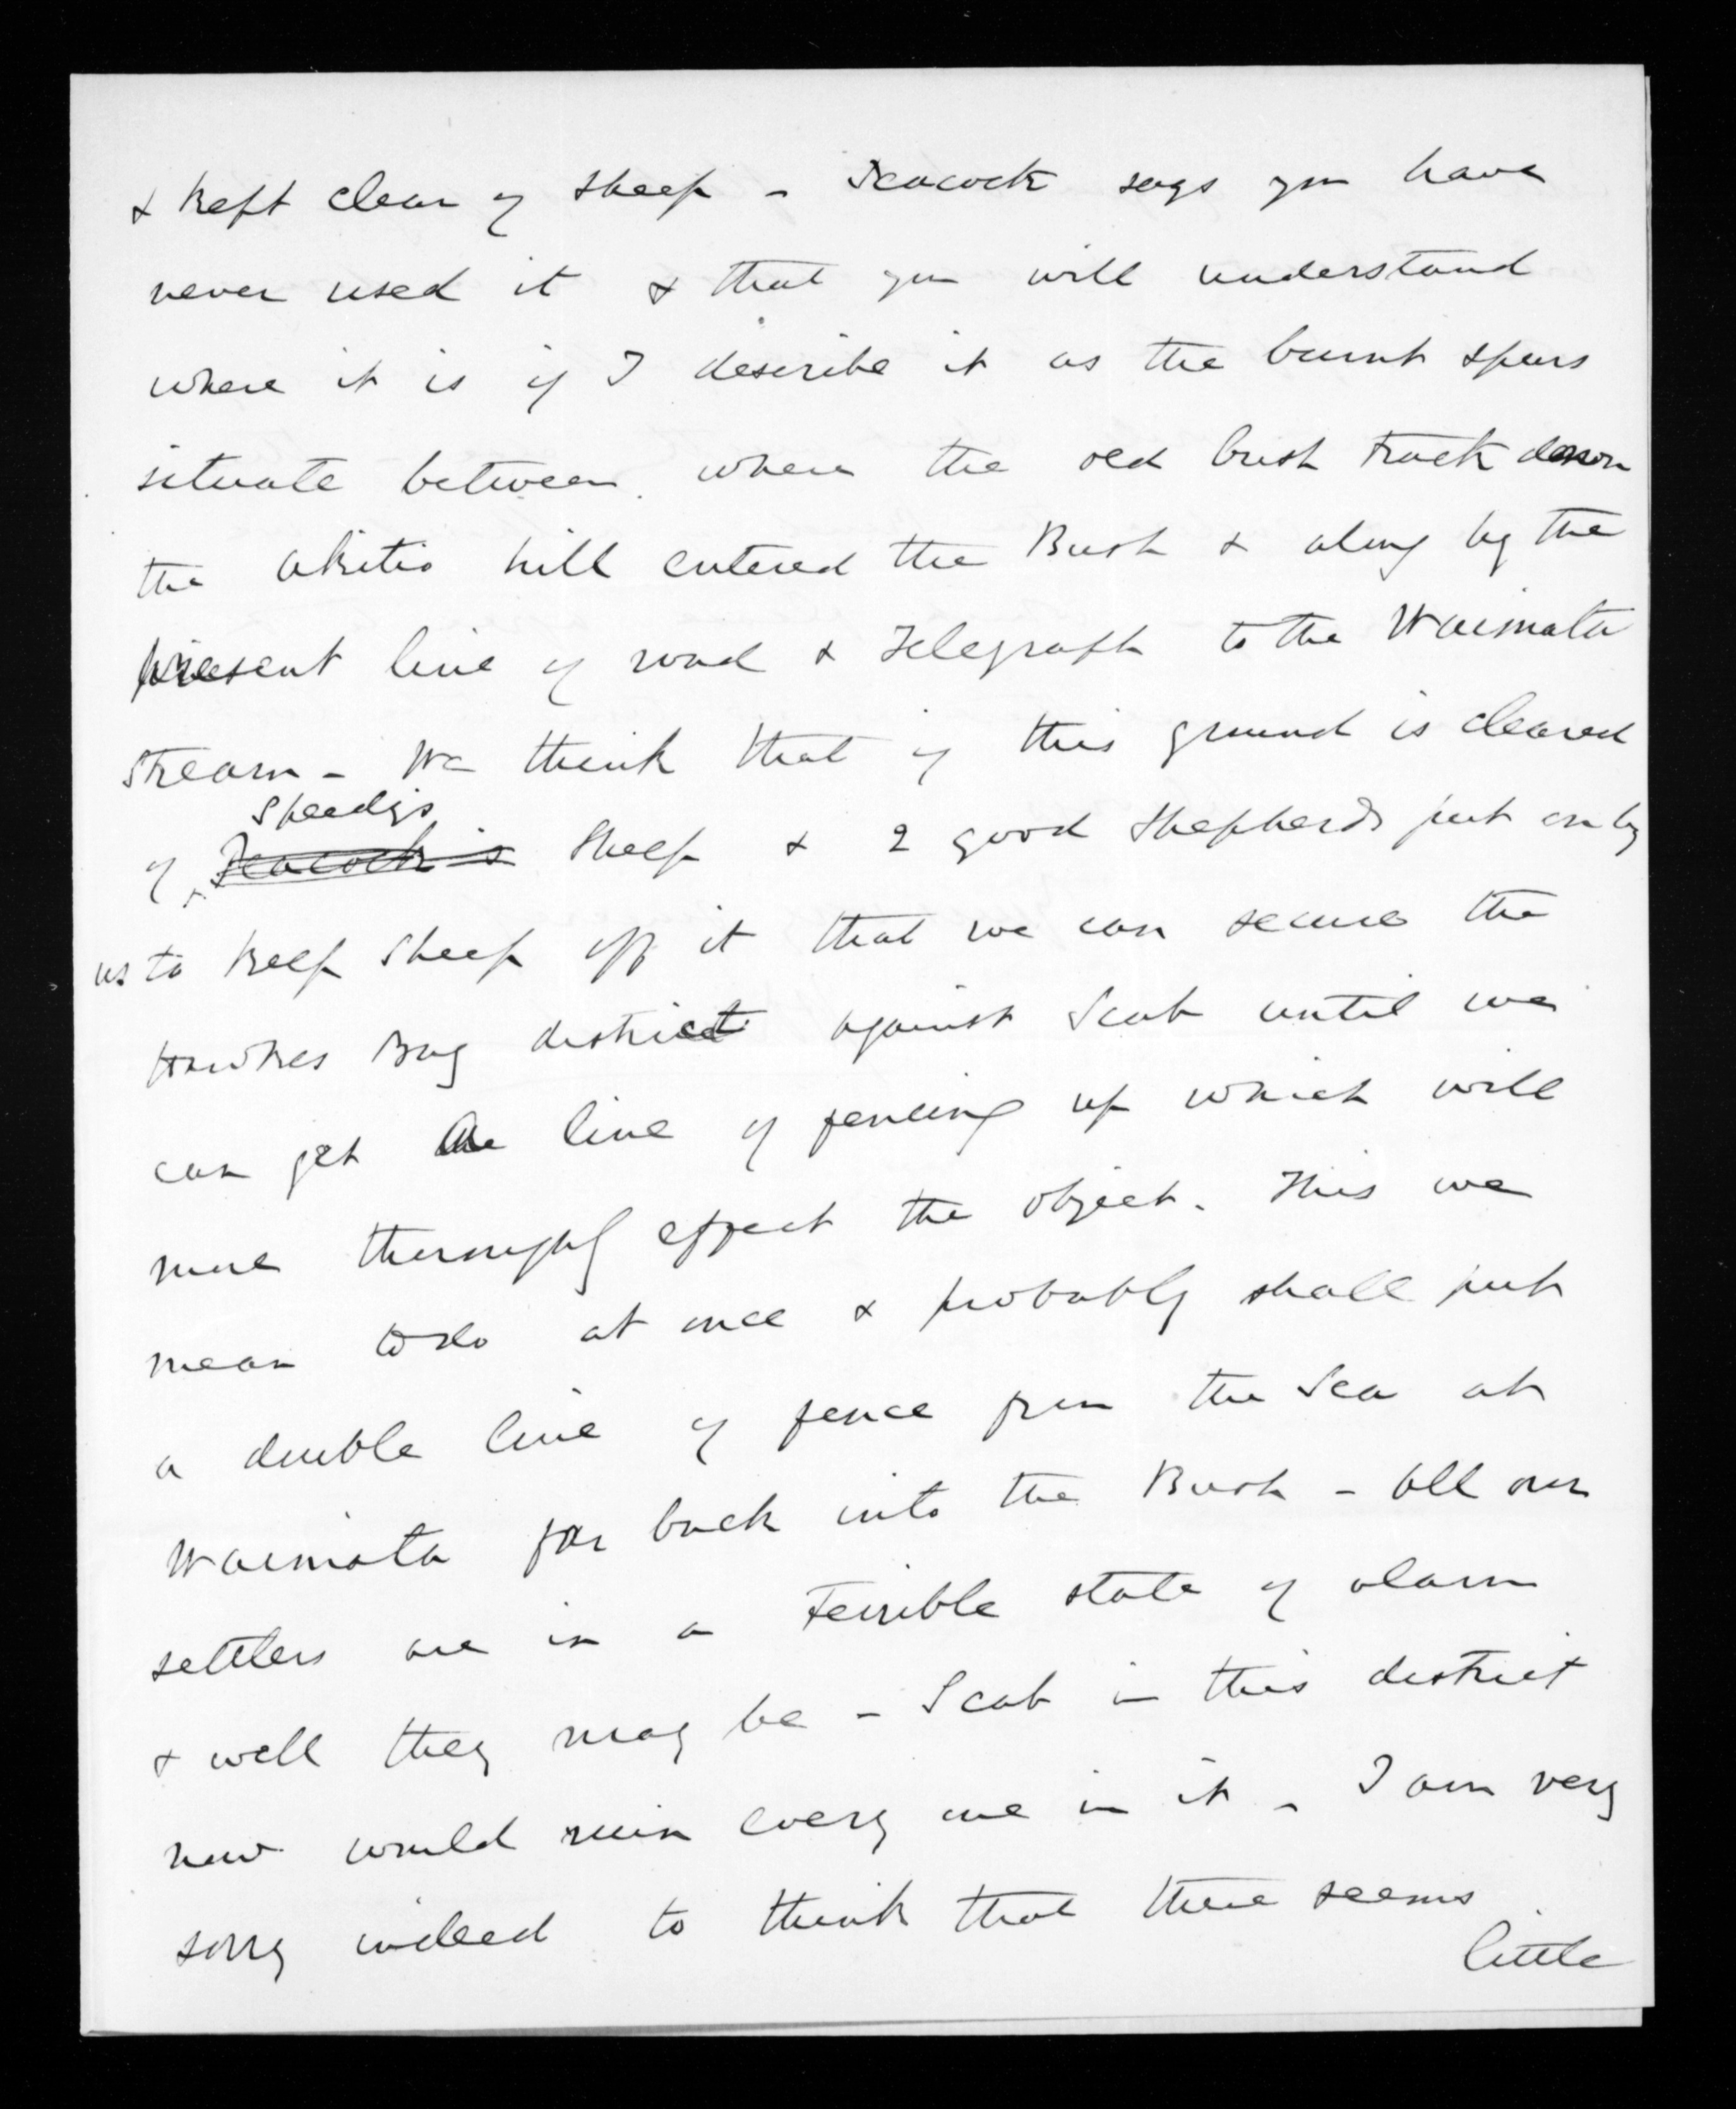 & kept clear of sheep - Seacock says you have
never used it & that you will understand
where it is if I describe it as the burnt spurs
situate between where the old bush track down
the Akitio hill entered the Bush & along by the
present line of road & Telegraph to the Waimata
Stream - We think that if this ground is cleared
Speedys
of Seacock's Sheep & 2 good Shepherds put on by
us to keep Sheep off it that we can secure the
Hawkes Bay district against Scab until we
can get a line of fencing up which will
more thoroughly effect the object. This we
mean to do at once & probably shall put
a double line of fence from the Sea at
Waimata far back into the Bush - All our
settlers are in a Terrible state of alarm
& well they may be - Scab in this district
now would ruin every one in it - I am very
sorry indeed to think that there seems
little